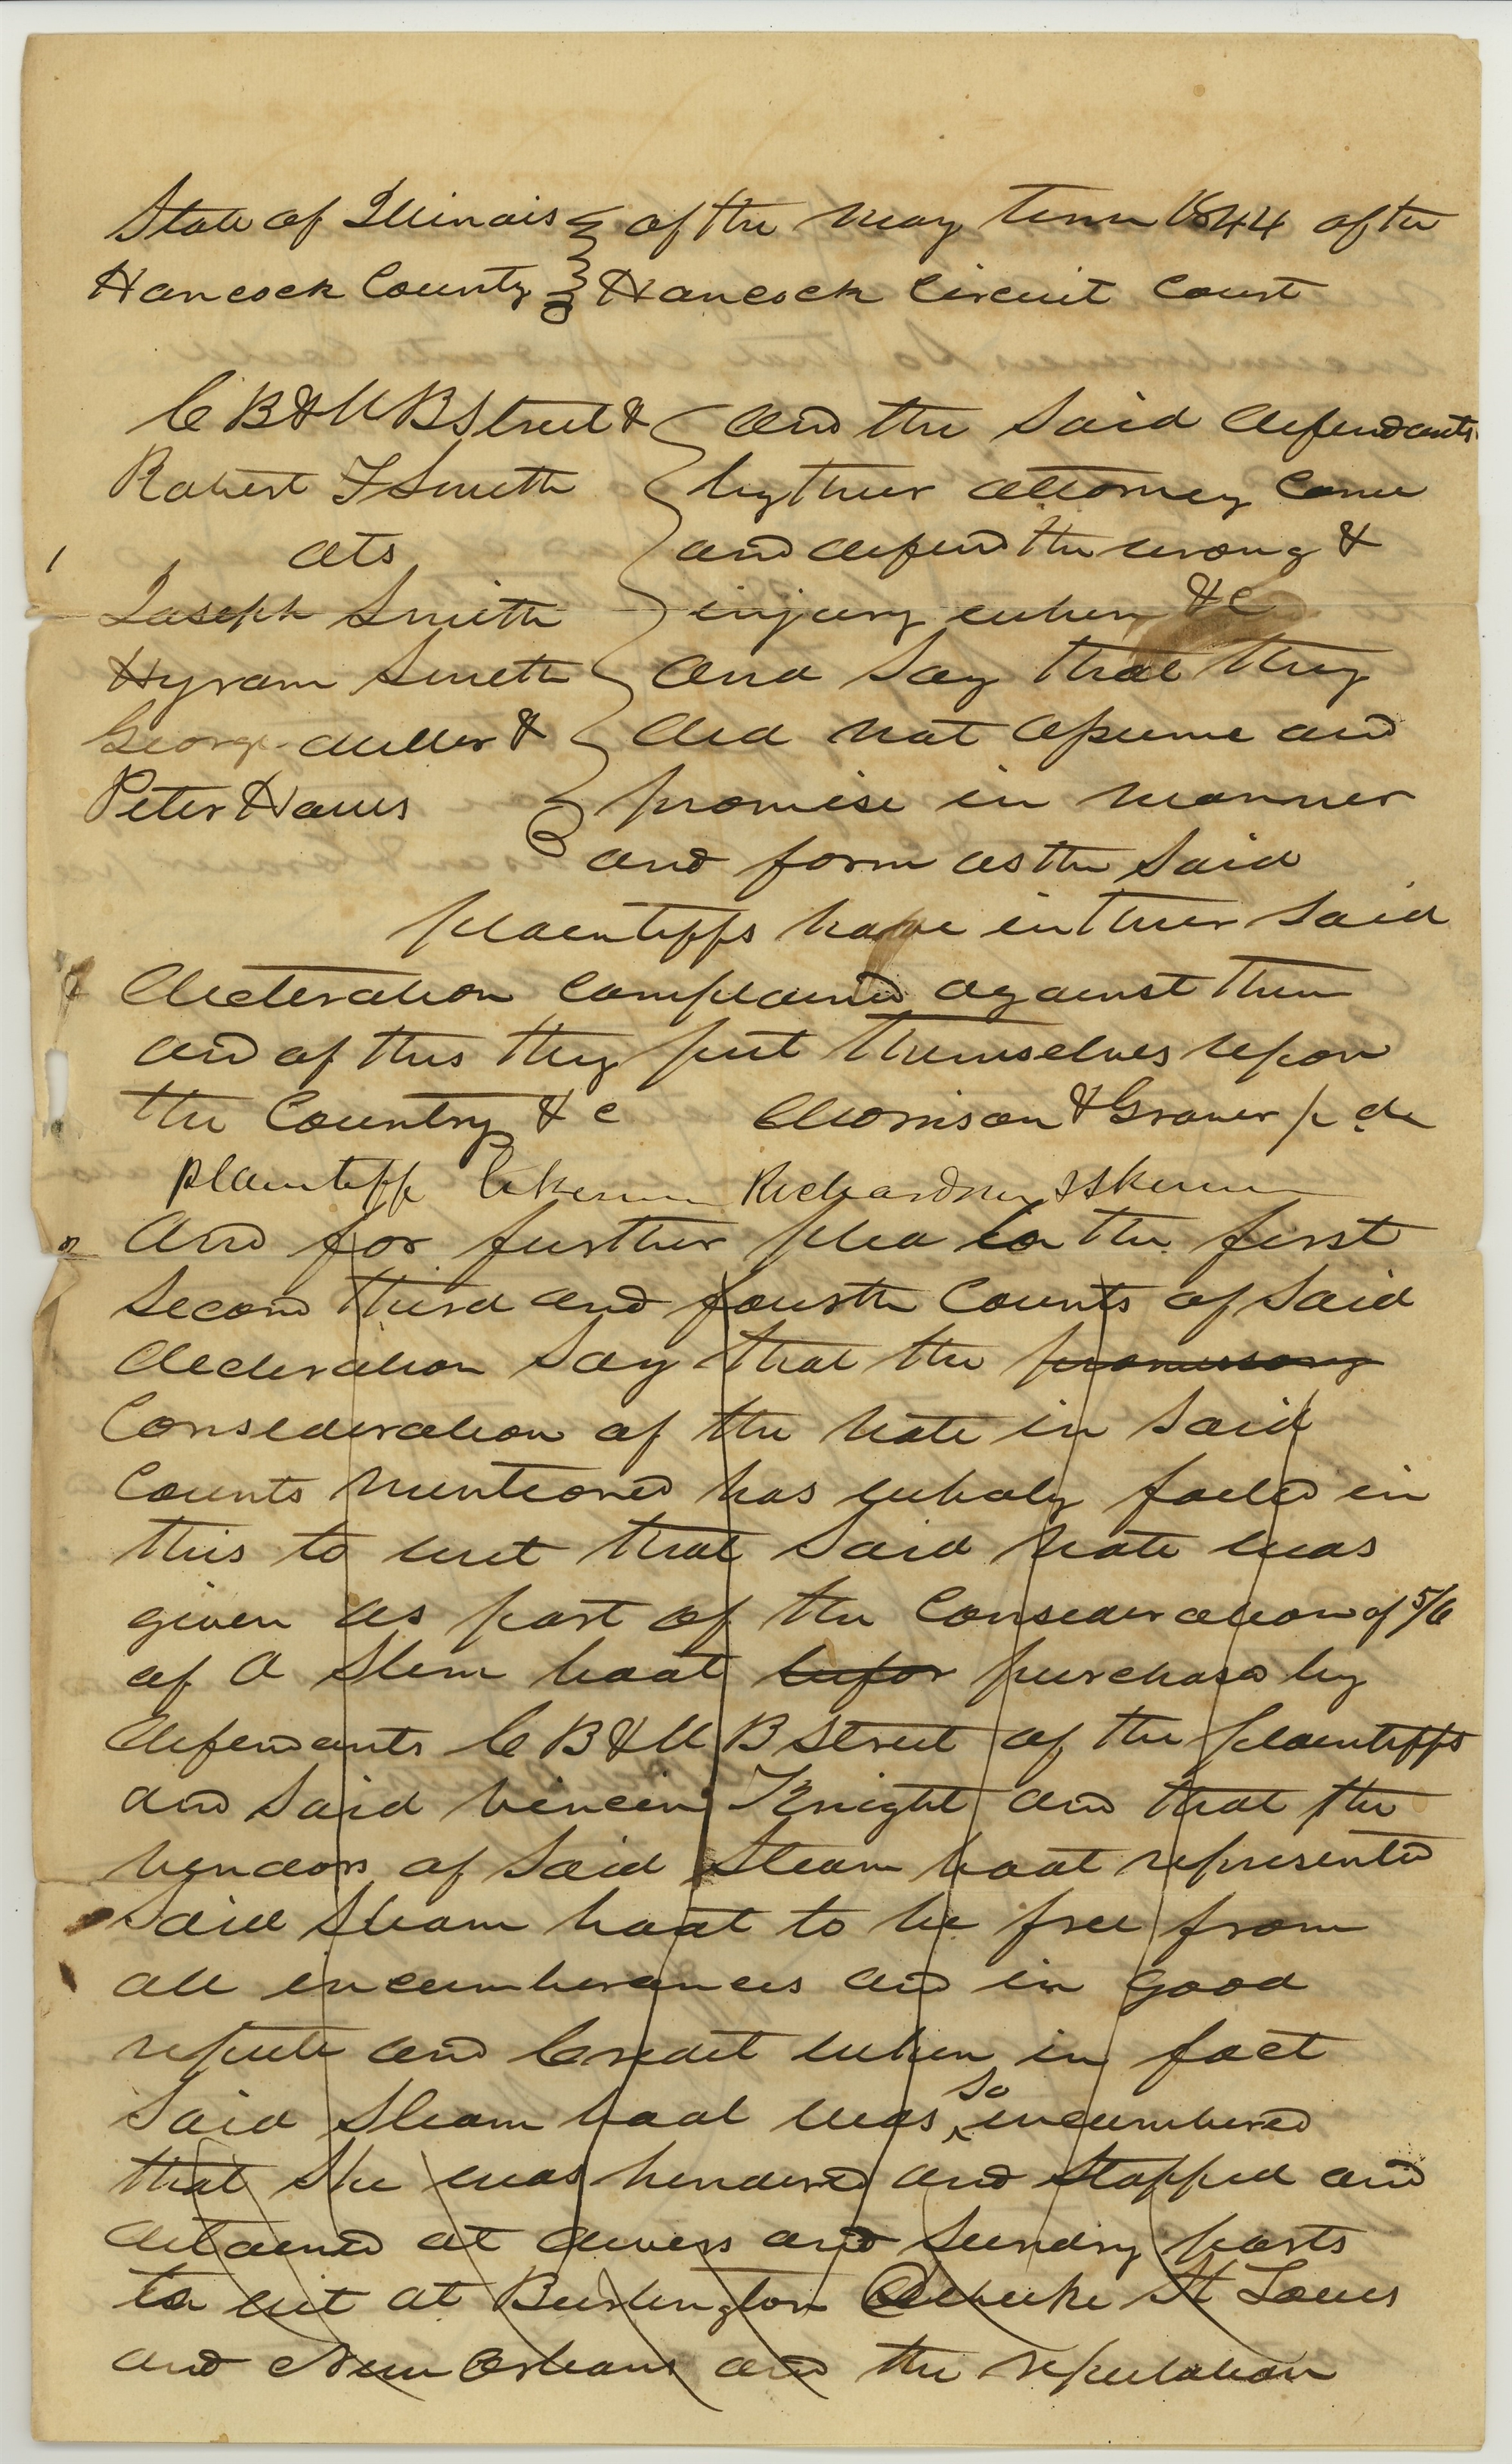 State of Illinois } of the may term 1844 of the
Hancock County } Hancock Circuit Court
C B & M B Street & } and the said defendants
Robert F Smith } by their attorney come
1 ats } and defend the wrong &
Joseph Smith } injury when &c
Hyram Smith } and say that they
George Miller & } did not assume and
Peter Haws } promise in manner
and form as the said
plaintiffs have in their said
declaration complained against them
and of this they put themselves upon
the Country &c Morrison & Graver p d
plaintiff likewise Richardson
2 and for further plea to the first
second third and fourth Counts of said
declaration say that the promissory
Consideration of the note in said
Counts mentioned has wholy failed in
this to wit that said note was
given as part of the Consideration of 5/6
of a Stem boat purchasd by
defendants C B & M B Street of the plaintiffs
and said Vincin Knight and that the
vendors of said Steam boat represented
said steam boat to be free from
all incumberances and in good
repute and Credit when in fact
said steam boat was so incumbered
that she was hendered and stopped and
detained at divers and sundry ports
to wit at Burlington St Louis
and New Orleans and the reputation